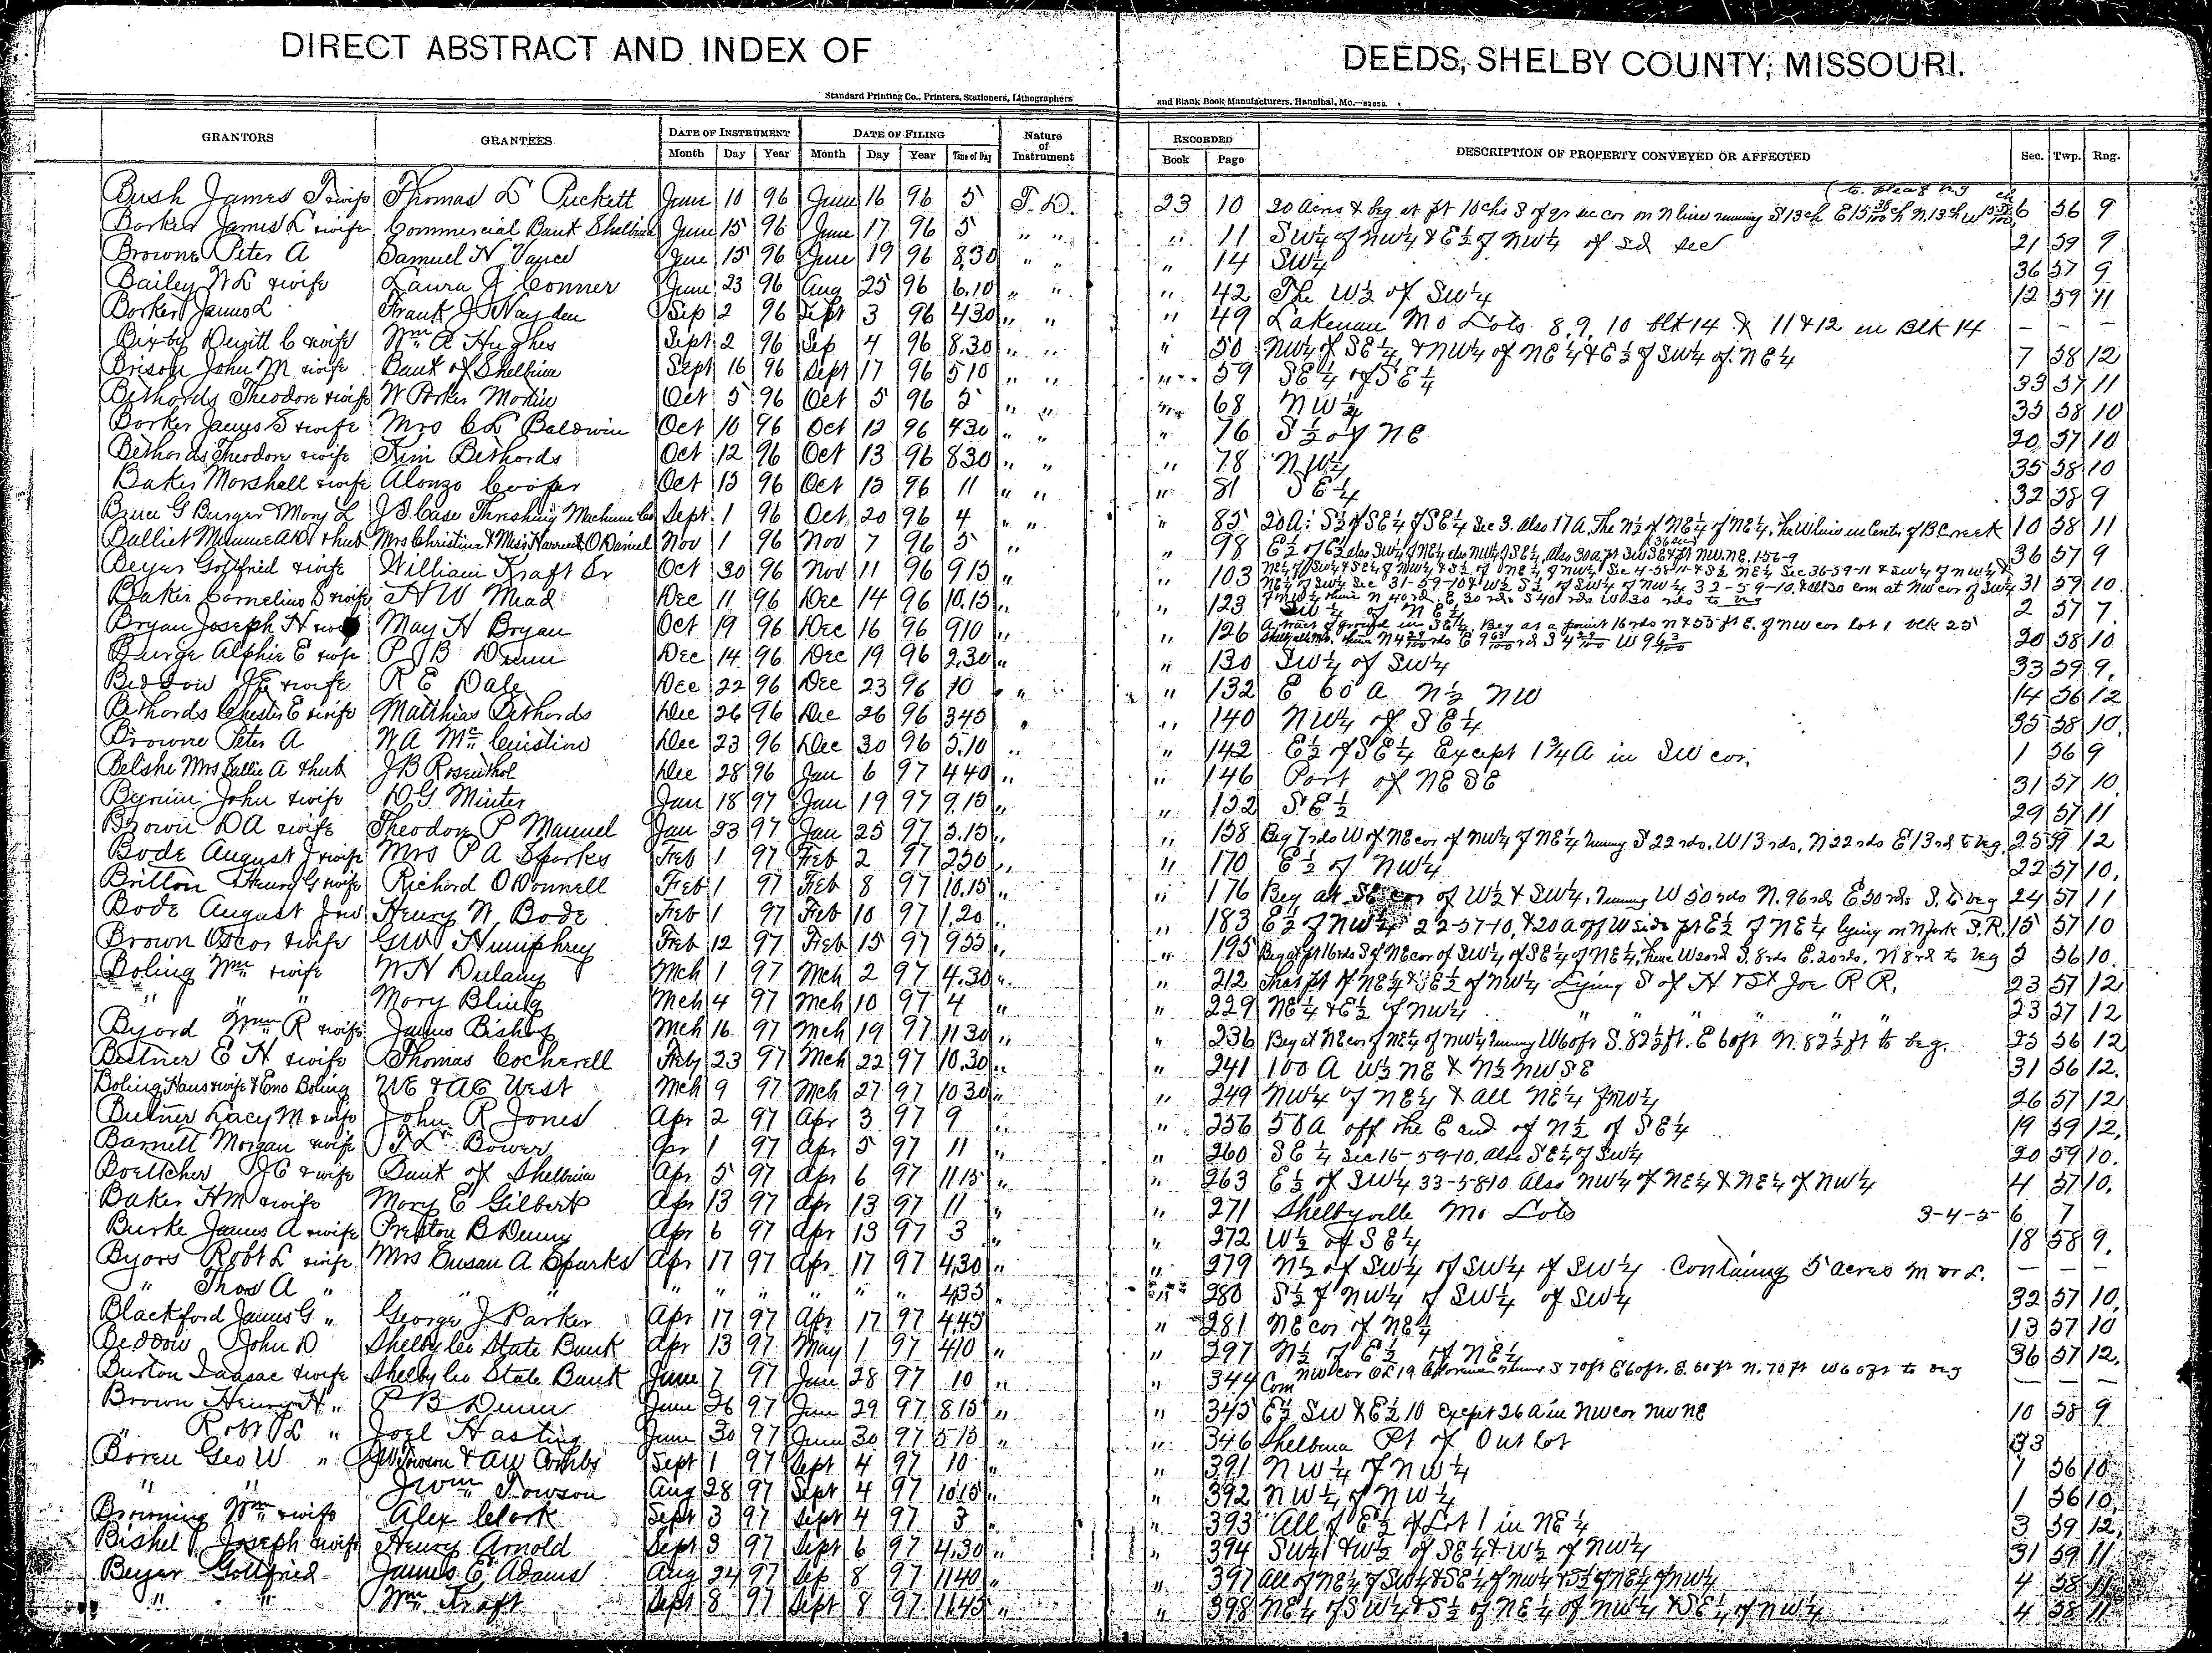 DIRECT ABSTRACT AND INDEX OF DEEDS, SHELBY COUNTY, MISSOURI.
Standard Printing Co., Printers, Stationers, Lithographers and Blank Book Manufacturers, Hannibal, Mo.
GRANTORS GRANTEES DATE OF INSTRUMENT DATE OF FILING Nature of Instrument RECORDED DESCRIPTION OF PROPERTY CONVEYED OR AFFECTED Sec. Twp. Rng.
Month Day Year Month Day Year Time of Day Book Page
Bush James T wife Thomas L Puckett June 10 96 June 16 96 5 T. D. 23 10 20 Acres & beg at pt 10 chs S of qr sec cor on N line running S 13 ch 6 56 9
Borker James L & wife Commercial Bank Shelbina June 15 96 June 17 96 5 " " " 11 SW¼ of NW¼ & E½ of NW¼ of sd sec 21 59 9
Browne Peter A Samuel H Vance June 15 96 June 19 96 8.30 " " " 14 SW¼ 36 57 9
Bailey W L & wife Laura J Conner June 23 96 Aug 25 96 6.10 " " " 42 The W½ of SW¼ 12 59 11
Borker James L Frank J Hayden Sep 2 96 Sept 3 96 430 " " " 49 Lakenan Mo Lots 8, 9, 10 blk 14 & 11 & 12 in Blk 14 – – –
Bixby Dewitt C & wife Wm A Hughes Sept 2 96 Sep 4 96 8.30 " " " 50 NW¼ of SE¼, & NW¼ of NE¼ & E½ of SW¼ of NE¼ 7 58 12
Brison John M & wife Bank of Shelbina Sept 16 96 Sept 17 96 510 " " " 59 SE¼ of SE¼ 33 57 11
Bethards Theodore & wife W Parker Modin Oct 5 96 Oct 5 96 5 " " " 68 NW¼ 35 58 10
Borker James S & wife Mrs C L Baldwin Oct 10 96 Oct 12 96 430 " " " 76 S½ of NE 20 57 10
Bethards Theodore & wife Kim Bethards Oct 12 96 Oct 13 96 830 " " " 78 NW¼ 35 58 10
Baker Marshall & wife Alonzo Cooper Oct 13 96 Oct 13 96 11 " " " 81 SE¼ 32 58 9
G Burger & Mary L J I Case Threshing Machine Co Sept 1 96 Oct 20 96 4 " " " 85 20 A: S½ of SE¼ of SE¼ Sec 3. Also 17 A. The N½ of NE¼ of NE¼ 10 58 11
Mrs Christina & Miss Harriet O Daniel Nov 1 96 Nov 7 96 5 " " 98 36 57 9
Beyer Gottfried & wife William Kraft Sr Oct 30 96 Nov 11 96 915 " " 103 31 59 10
Baker Cornelius S & wife H W Mead Dec 11 96 Dec 14 96 10.15 " " 123 SW¼ of NE¼ 2 57 7
Bryan Joseph H & wife May H Bryan Oct 19 96 Dec 16 96 910 " " 126 A tract of ground in SE¼. Beg at a point 16 rds N & 55 ft E. of NW cor lot 1 blk 25 20 58 10
Burge Alphie E & wife P B Dunn Dec 14 96 Dec 19 96 2.30 " " 130 SW¼ of SW¼ 33 59 9
Beddow J E & wife R E Dale Dec 22 96 Dec 23 96 10 " " 132 E 60 A N½ NW 14 56 12
Bethards Chester E & wife Matthias Bethards Dec 26 96 Dec 26 96 345 " " 140 NW¼ of SE¼ 35 58 10
Browne Peter A W A McQuistion Dec 23 96 Dec 30 96 5.10 " " 142 E½ of SE¼ Except 1¾ A in SW cor. 1 56 9
Belshe Mrs Sallie A & hub J B Rosenthal Dec 28 96 Jan 6 97 440 " " 146 Part of NE SE 31 57 10
Byrum John & wife D G Minter Jan 18 97 Jan 19 97 9.15 " " 152 SE½ 29 57 11
Brown D A & wife Theodore P Manuel Jan 23 97 Jan 25 97 3.15 " " 158 Beg 7 rds W of NE cor of NW¼ of NE¼ running S 22 rds, W 13 rds, N 22 rds E 13 rd to beg. 25 59 12
Bode August J & wife Mrs P A Sparks Feb 1 97 Feb 2 97 250 " " 170 E½ of NW¼ 22 57 10
Britton Henry G & wife Richard O Donnell Feb 1 97 Feb 8 97 10.15 " " 176 Beg at SE cor of W½ & SW¼, running W 50 rds N. 96 rds E 50 rds S. to beg 24 57 11
Bode August J Henry W Bode Feb 1 97 Feb 10 97 1.20 " " 183 E½ of NW¼ 22-57-10, & 20 A off W side pt E½ of NE¼ lying on N fork S.R. 15 57 10
Brown Oscar & wife G W Humphrey Feb 12 97 Feb 15 97 955 " " 195 Beg at pt 16 rds S of NE cor of SW¼ of SE¼ of NE¼, thence W 20 rd S. 8 rds E. 20 rds, N 8 rd to beg 2 56 10
Boling Wm & wife W H Dulany Mch 1 97 Mch 2 97 4.30 " " 212 That pt of NE¼ & E½ of NW¼ Lying S of H & St Joe R R. 23 57 12
" " " Mary Bling Mch 4 97 Mch 10 97 4 " " 229 NE¼ & E½ of NW¼ " " " " " 23 57 12
Byord Wm R & wife James Bishop Mch 16 97 Mch 19 97 11 30 " " 236 Beg at NE cor of NE¼ of NW¼ running W 60 ft S. 82½ ft. E 60 ft N. 82½ ft to beg. 25 56 12
E H & wife Thomas Cockerell Feby 23 97 Mch 22 97 10.30 " " 241 100 A W½ NE & N½ NW SE 31 56 12
Boling Hans & wife & Eno Boling W E & A C West Mch 9 97 Mch 27 97 10 30 " " 249 NW¼ of NE¼ & all NE¼ of NW¼ 26 57 12
Butner Lacy M & wife John R Jones Apr 2 97 Apr 3 97 9 " " 256 50 A off the E end of N½ of SE¼ 19 59 12
Barnett Morgan & wife T L Bower Apr 1 97 Apr 5 97 11 " " 260 SE¼ Sec 16-59-10, also SE¼ of SW¼ 20 59 10
Boettcher J C & wife Bank of Shelbina Apr 5 97 Apr 6 97 11 15 " " 263 E½ of SW¼ 33-58-10 Also NW¼ of NE¼ & NE¼ of NW¼ 4 57 10
Baker H M & wife Mary E Gilbert Apr 13 97 Apr 13 97 11 " " 271 Shelbyville Mo Lots 3-4-5- 6 7
Burke James A & wife Preston B Dunn Apr 6 97 Apr 13 97 3 " " 272 W½ of SE¼ 18 58 9
Byars Robt L & wife Mrs Susan A Sparks Apr 17 97 Apr 17 97 4.30 " " 279 N½ of SW¼ of SW¼ of SW¼ Containing 5 acres m or L. – – –
" Thos A " " " " " " " " " 435 " " 280 S½ of NW¼ of SW¼ of SW¼ 32 57 10
Blackford James G " George J Parker Apr 17 97 Apr 17 97 4.45 " " 281 NE cor of NE¼ 13 57 10
Beddow John D Shelby Co State Bank Apr 13 97 May 1 97 410 " " 297 N½ of E½ of NE¼ 36 57 12
Burton Isaac & wife Shelby Co State Bank June 7 97 June 28 97 10 " " 344 Com NW cor S 70 ft E 60 ft. N. 70 ft W 60 ft to beg – – –
Brown Henry H " P B Dunn June 26 97 June 29 97 8 15 " " 345 E½ SW & E½ 10 except 26 A in NW cor NW NE 10 58 9
" Robt L " Joel Hasting June 30 97 June 30 97 5 15 " " 346 Shelbina Pt of Out lot 33
Boren Geo W " J W Towson & A W Combs Sept 1 97 Sept 4 97 10 " " 391 NW¼ of NW¼ 1 56 10
" " J Wm Towson Aug 28 97 Sept 4 97 10 15 " " 392 NW¼ of NW¼ 1 56 10
Browning Wm & wife Alex Clark Sept 3 97 Sept 4 97 3 " " 393 All of E½ of Lot 1 in NE¼ 3 59 12
Bishel Joseph & wife Henry Arnold Sept 3 97 Sept 6 97 4.30 " " 394 SW¼ & W½ of SE¼ & W½ of NW¼ 31 59 11
Beyer Gottfried James E Adams Aug 24 97 Sep 8 97 1140 " " 397 All of NE¼ of SW¼ & SE¼ of NW¼ & S½ of NE¼ of NW¼ 4 58 11
" " Wm Kraft Sept 8 97 Sept 8 97 1145 " " 398 NE¼ of SW¼ & S½ of NE¼ of NW¼ & SE¼ of NW¼ 4 58 11